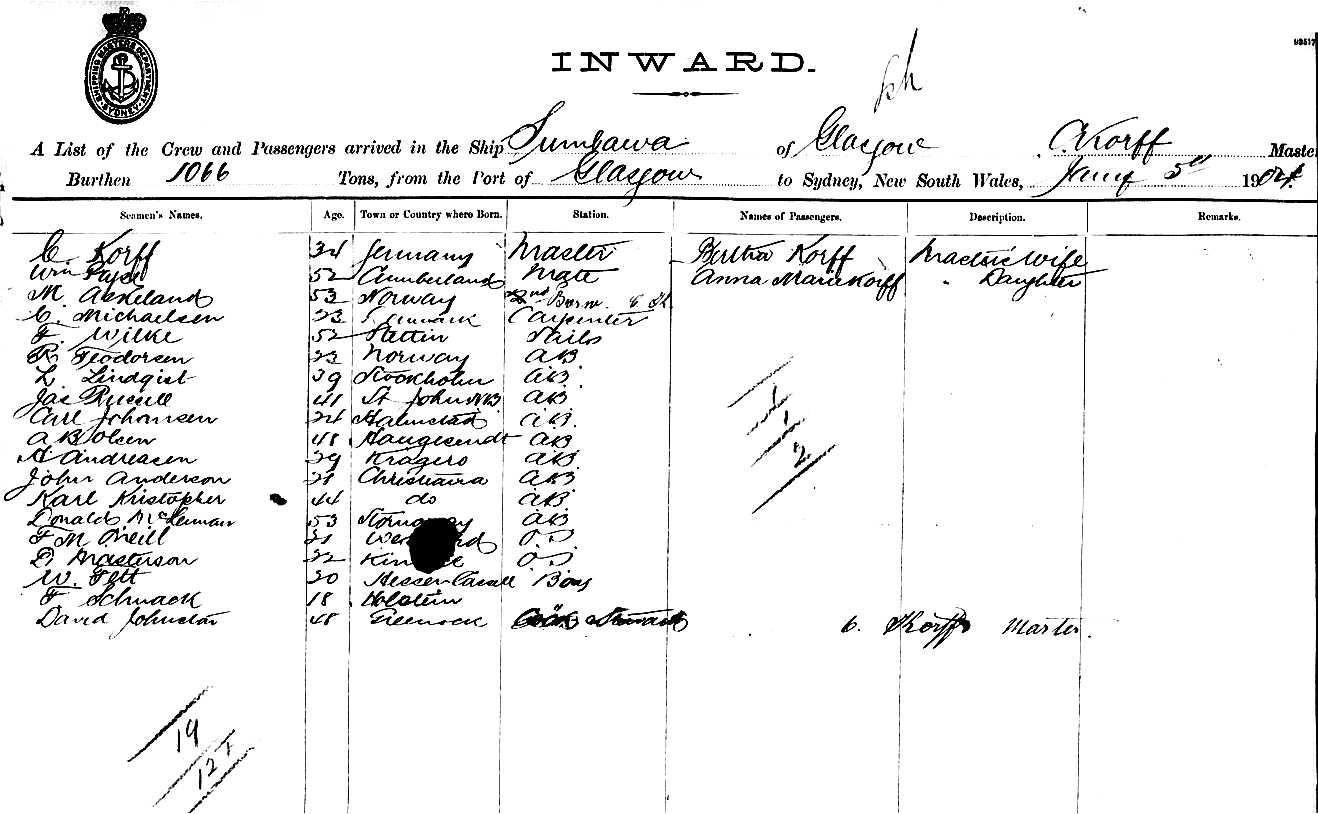 SHIPPING MASTERS DEPARTMENT SYDNEY
93517
INWARD.
A List of the Crew and Passengers arrived in the Ship Sumbawa of Glasgow C. Korff Master
Burthen 1066 Tons, from the Port of Glasgow to Sydney, New South Wales, 5th 1904
Seamen's Names. Age. Town or Country where Born. Station. Names of Passengers. Description. Remarks.
C. Korff 34 Germany Master Bertha Korff Master's Wife
Wm 52 Cumberland Mate Anna Marie Korff " Daughter
M. Askeland 53 Norway 2nd
C. Michaelsen 23 Carpenter
F. Wilke 52 Stettin Sails
R. Teodorsen 23 Norway AB
L. Lindqist 39 Stockholm AB
Jas Russell 41 St John NB AB
Carl Johansen 24 Halmstad AB
A B Olsen 48 Haugesundt AB
A Andreasen 29 Kragero AB
John Anderson 21 Christiania AB
Karl Kristopher 44 do AB
Donald McLennan 53 Stornoway AB
F M Neill 21 O.S
D. Masterson 22 O.S
W. Fett 20 Hessen Cassell Boy
F Schnack 18 Holstein
David Johnston 48 Greenock Cook & Steward C. Korff Master.
1
1
2
19